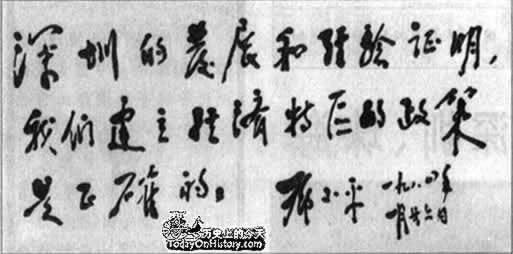 深圳的发展和经验证明，
我们建立经济特区的政策
是正确的。
邓小平 一九八四年
一月廿六日
历史上的今天
TodayOnHistory.com